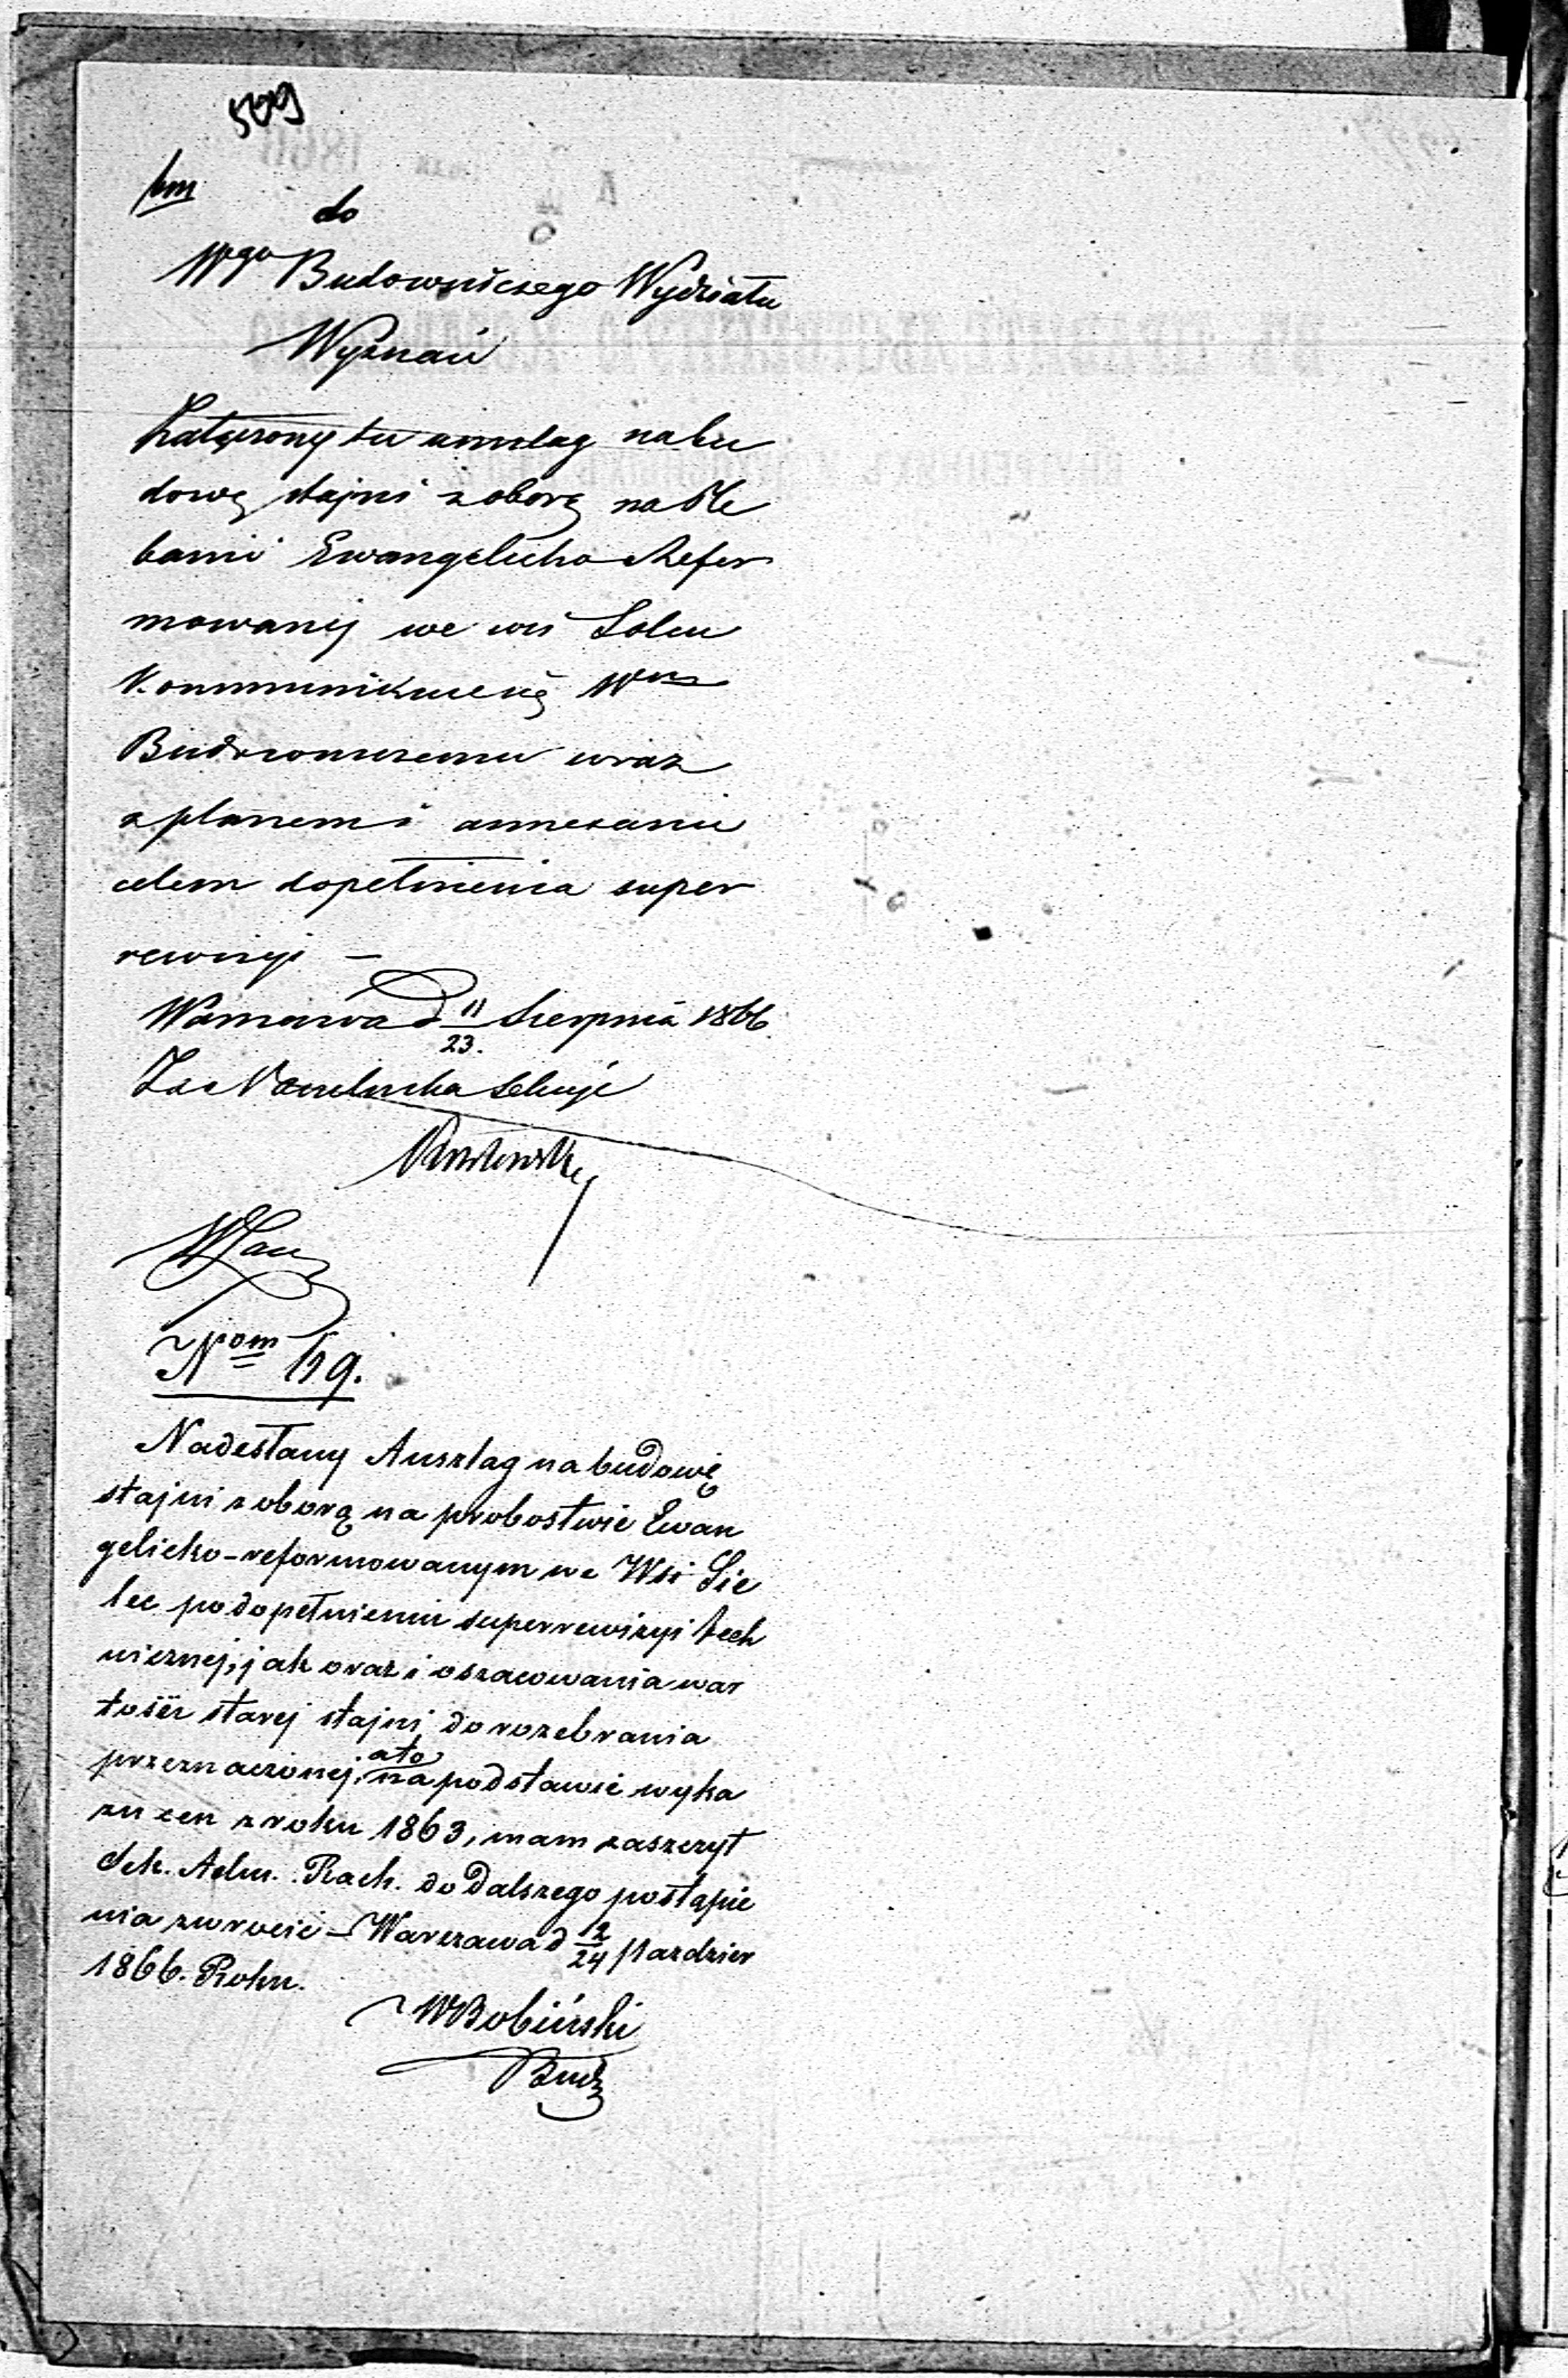 599
do
Wgo Budowniczego Wydziału
Wyznań
Załączony tu anszlag na bu
dowę stajni z oborą na Ple
banii Ewangelicko Refor
mowanej we wsi
Kommunikuje się Wmu
Budowniczemu wraz
z planem i annexami
celem dopełnienia super
rewizyi —
Warszawa d 11/23. Sierpnia 1866.
Za Naczelnika Sekcyi
Nom 69.
Nadesłany Anszlag na budowę
stajni z oborą na probostwie Ewan
gelicko-reformowanym we Wsi Sie
lec po dopełnieniu superrewizyi tech
nicznej, jak oraz i oszacowania war
tości starej stajni do rozebrania
przeznaczonej, ato
na podstawie wyka
zu cen z roku 1863, mam zaszczyt
Sek. Adm. Rach. do Dalszego postąpie
nia zwrócić – Warszawa d 12/24 Pazdzier
1866. Roku.
WBobiński
Bud